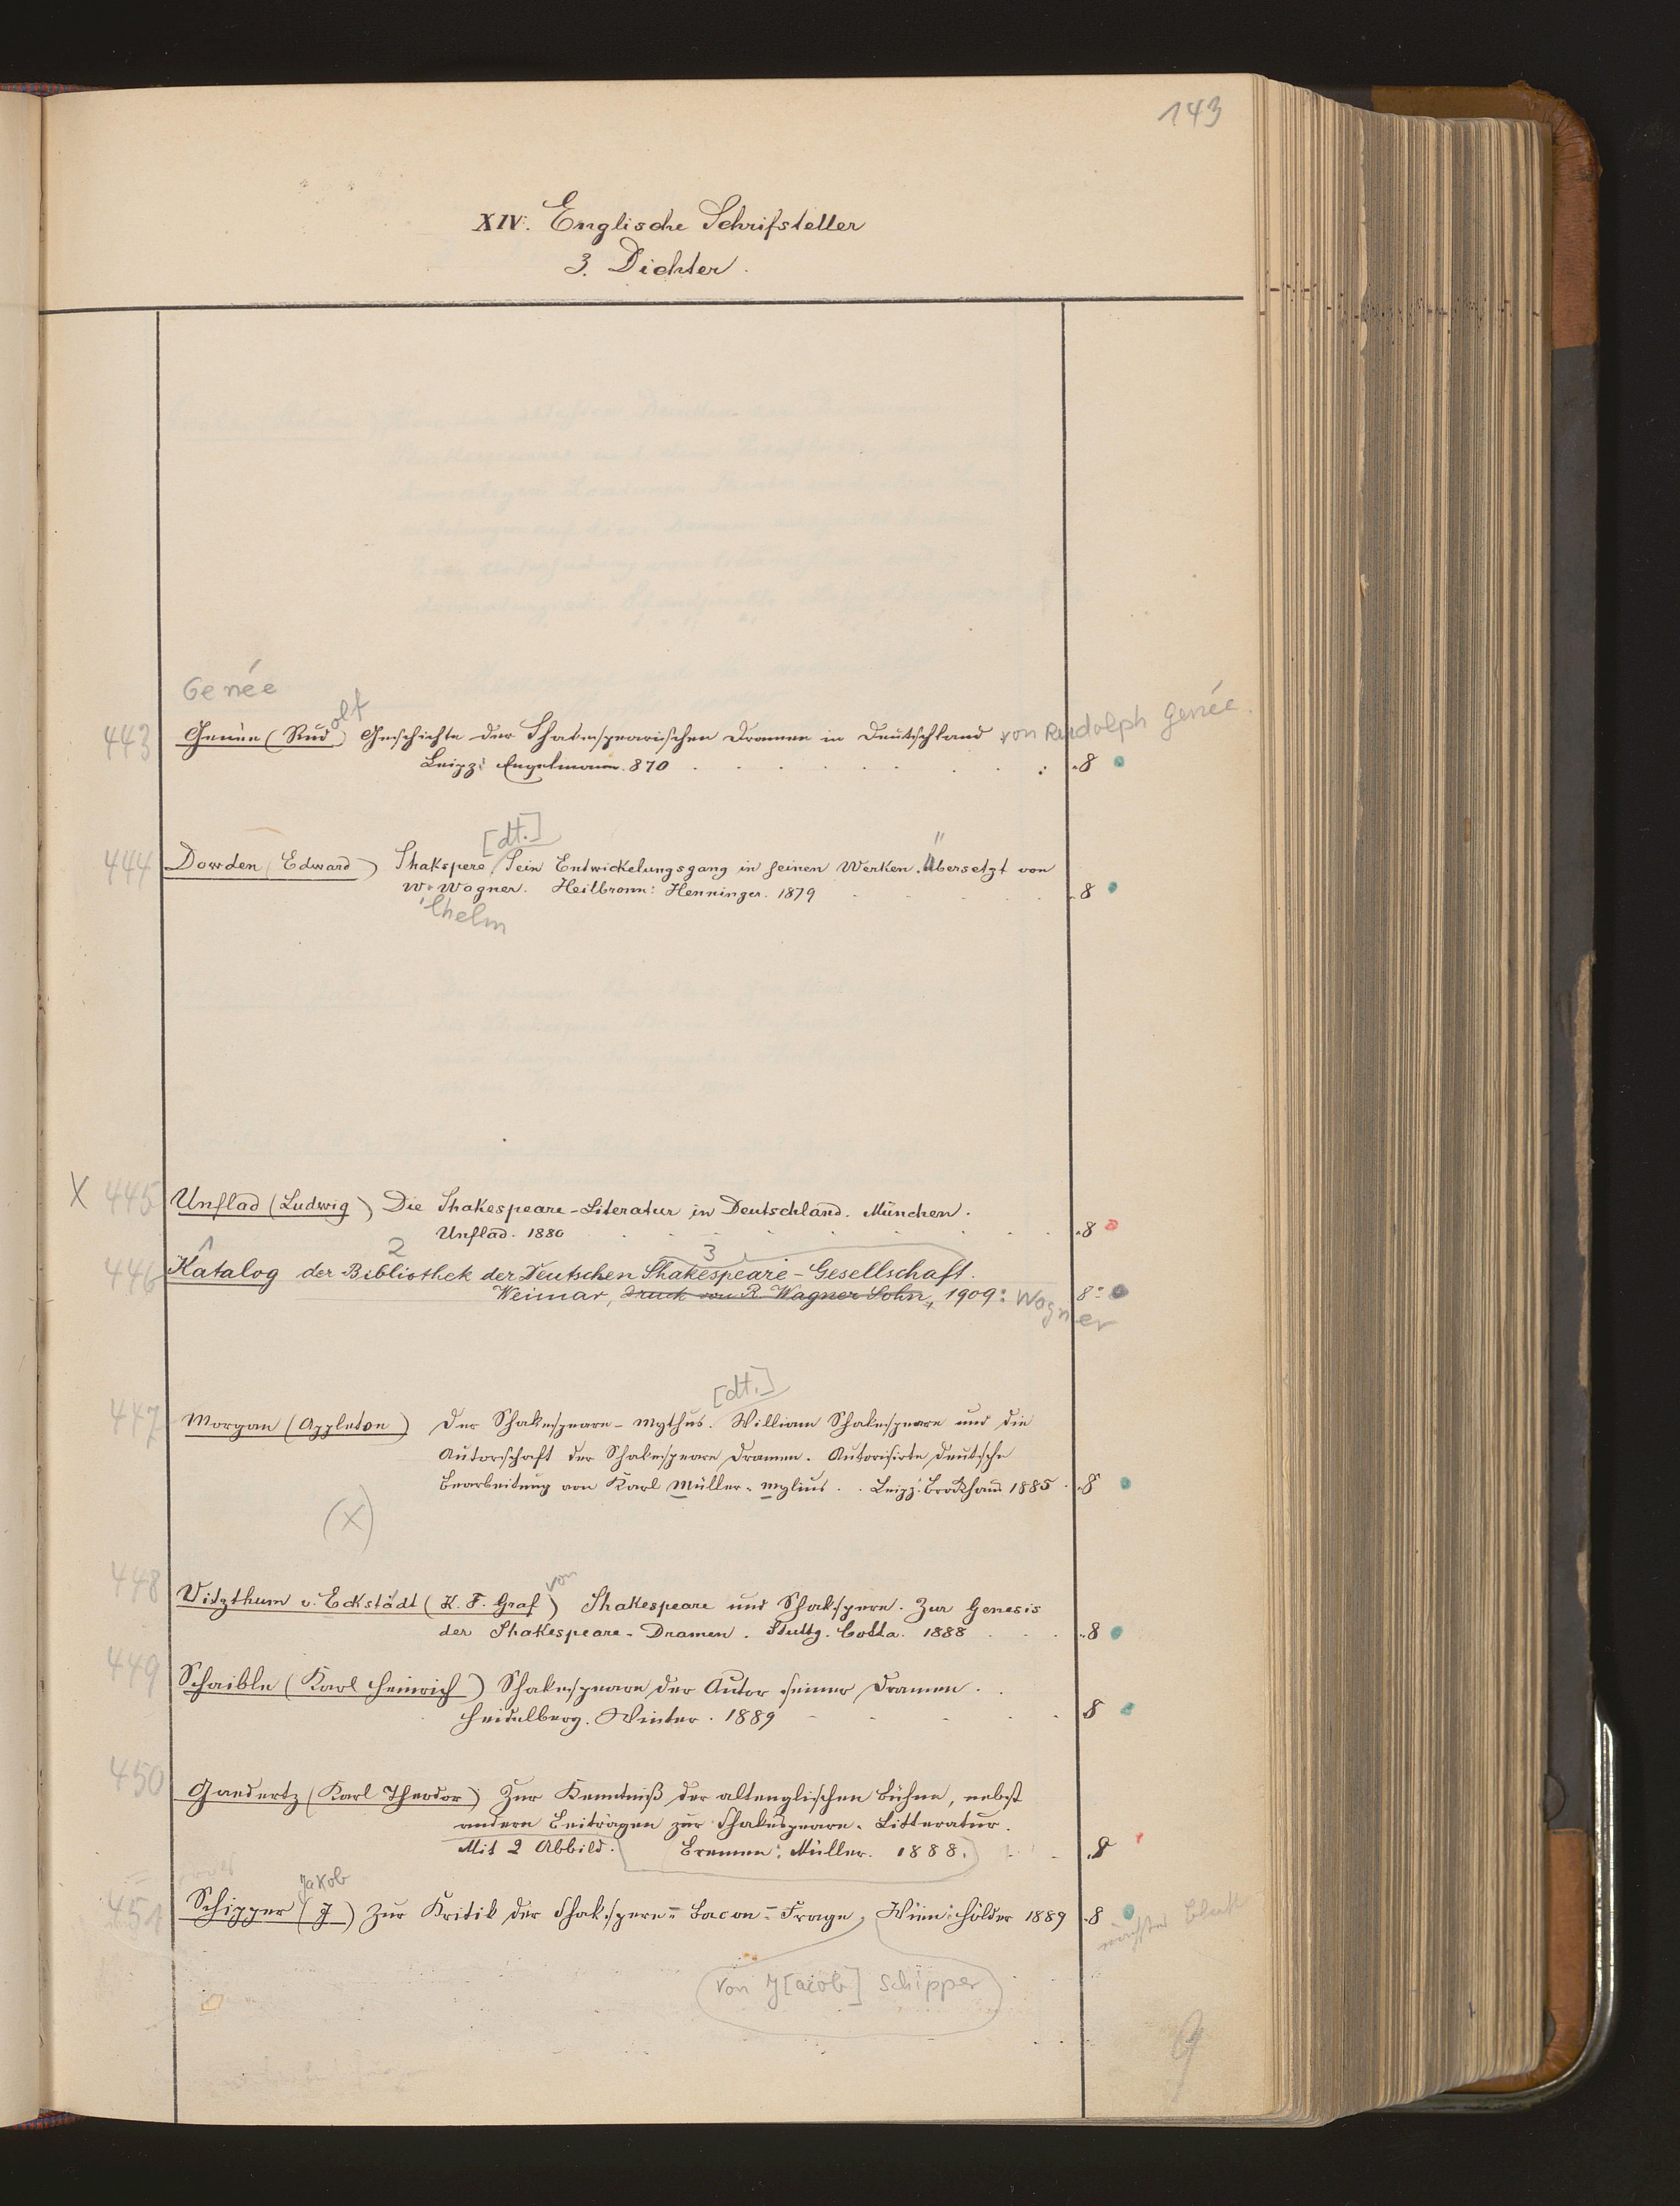 143
XIV. Englische Schrifsteller
3. Dichter.
Genée
443 Genée (Rudolf) Geschichte der Shakespearischen Dramen in Deutschland von Rudolph Genée.
Leipz: Engelmann. 870 . 8
[dt.]
444 Dowden (Edward) Shakspere, Sein Entwickelungsgang in seinen Werken. Übersetzt von
W. Wagner. Heilbronn: Henninger. 1879 . 8
ilhelm
X 445 Unflad (Ludwig) Die Shakespeare-Literatur in Deutschland. München.
Unflad. 1880 . 8
1 2 3
446 Katalog der Bibliothek der Deutschen Shakespeare-Gesellschaft.
Weimar, Druck von R. Wagner Sohn, 1909: Wagner 8°
[dt.]
447 Morgan (Appleton) Der Shakespeare-Mythus. William Shakespeare und die
Autorschaft der Shakespeare Dramen. Autorisirte deutsche
Bearbeitung von Karl Müller-Mylius. Leipz: Brockhaus 1885 . 8
(X)
von
448 Vitzthum v. Eckstädt (K. F. Graf) Shakespeare und Shakspere. Zur Genesis
der Shakespeare-Dramen. Stuttg. Cotta. 1888 . 8
449 Schaible (Karl Heinrich) Shakespeare der Autor seiner Dramen.
Heidelberg. Winter. 1889 8
450 Gaedertz (Karl Theodor) Zur Kenntniß der altenglischen Bühne, nebst
andern Beiträgen zur Shakespeare-Litteratur.
Mit 2 Abbild. Bremen: Müller. 1888. . 8
Jakob
451 Schipper (J) Zur Kritik der Shakspere=Bacon=Frage, Wien: Hölder 1889 . 8
nächstes Blatt
von J[acob] Schipper